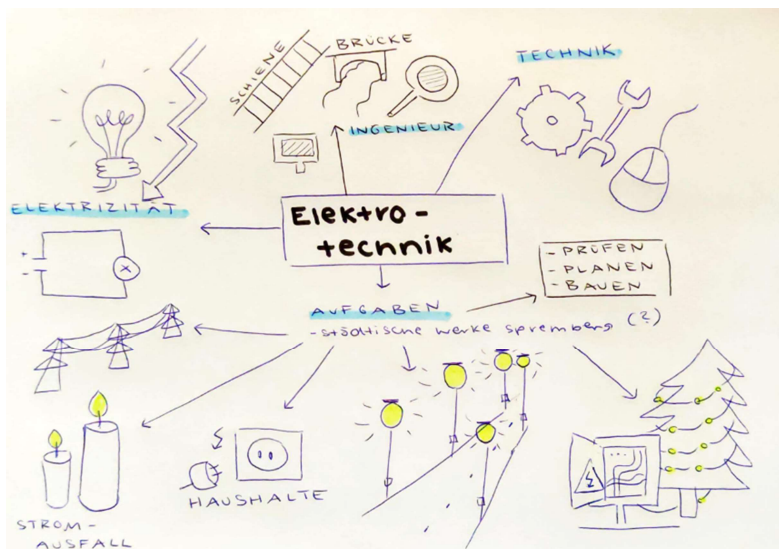 SCHIENE
BRÜCKE
TECHNIK
INGENIEUR
ELEKTRIZITÄT
Elektro-
technik
+
-
- PRÜFEN
- PLANEN
- BAUEN
AUFGABEN
- städtische werke spremberg (?)
HAUSHALTE
STROM-
AUSFALL